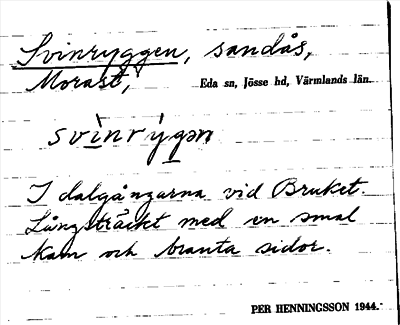 Svinryggen, sandås,
Morast,
Eda sn, Jösse hd, Värmlands län.
svìnrýgən
I dalgångarna vid Bruket.
Långsträckt med en smal
kam och branta sidor.
PER HENNINGSSON 1944.